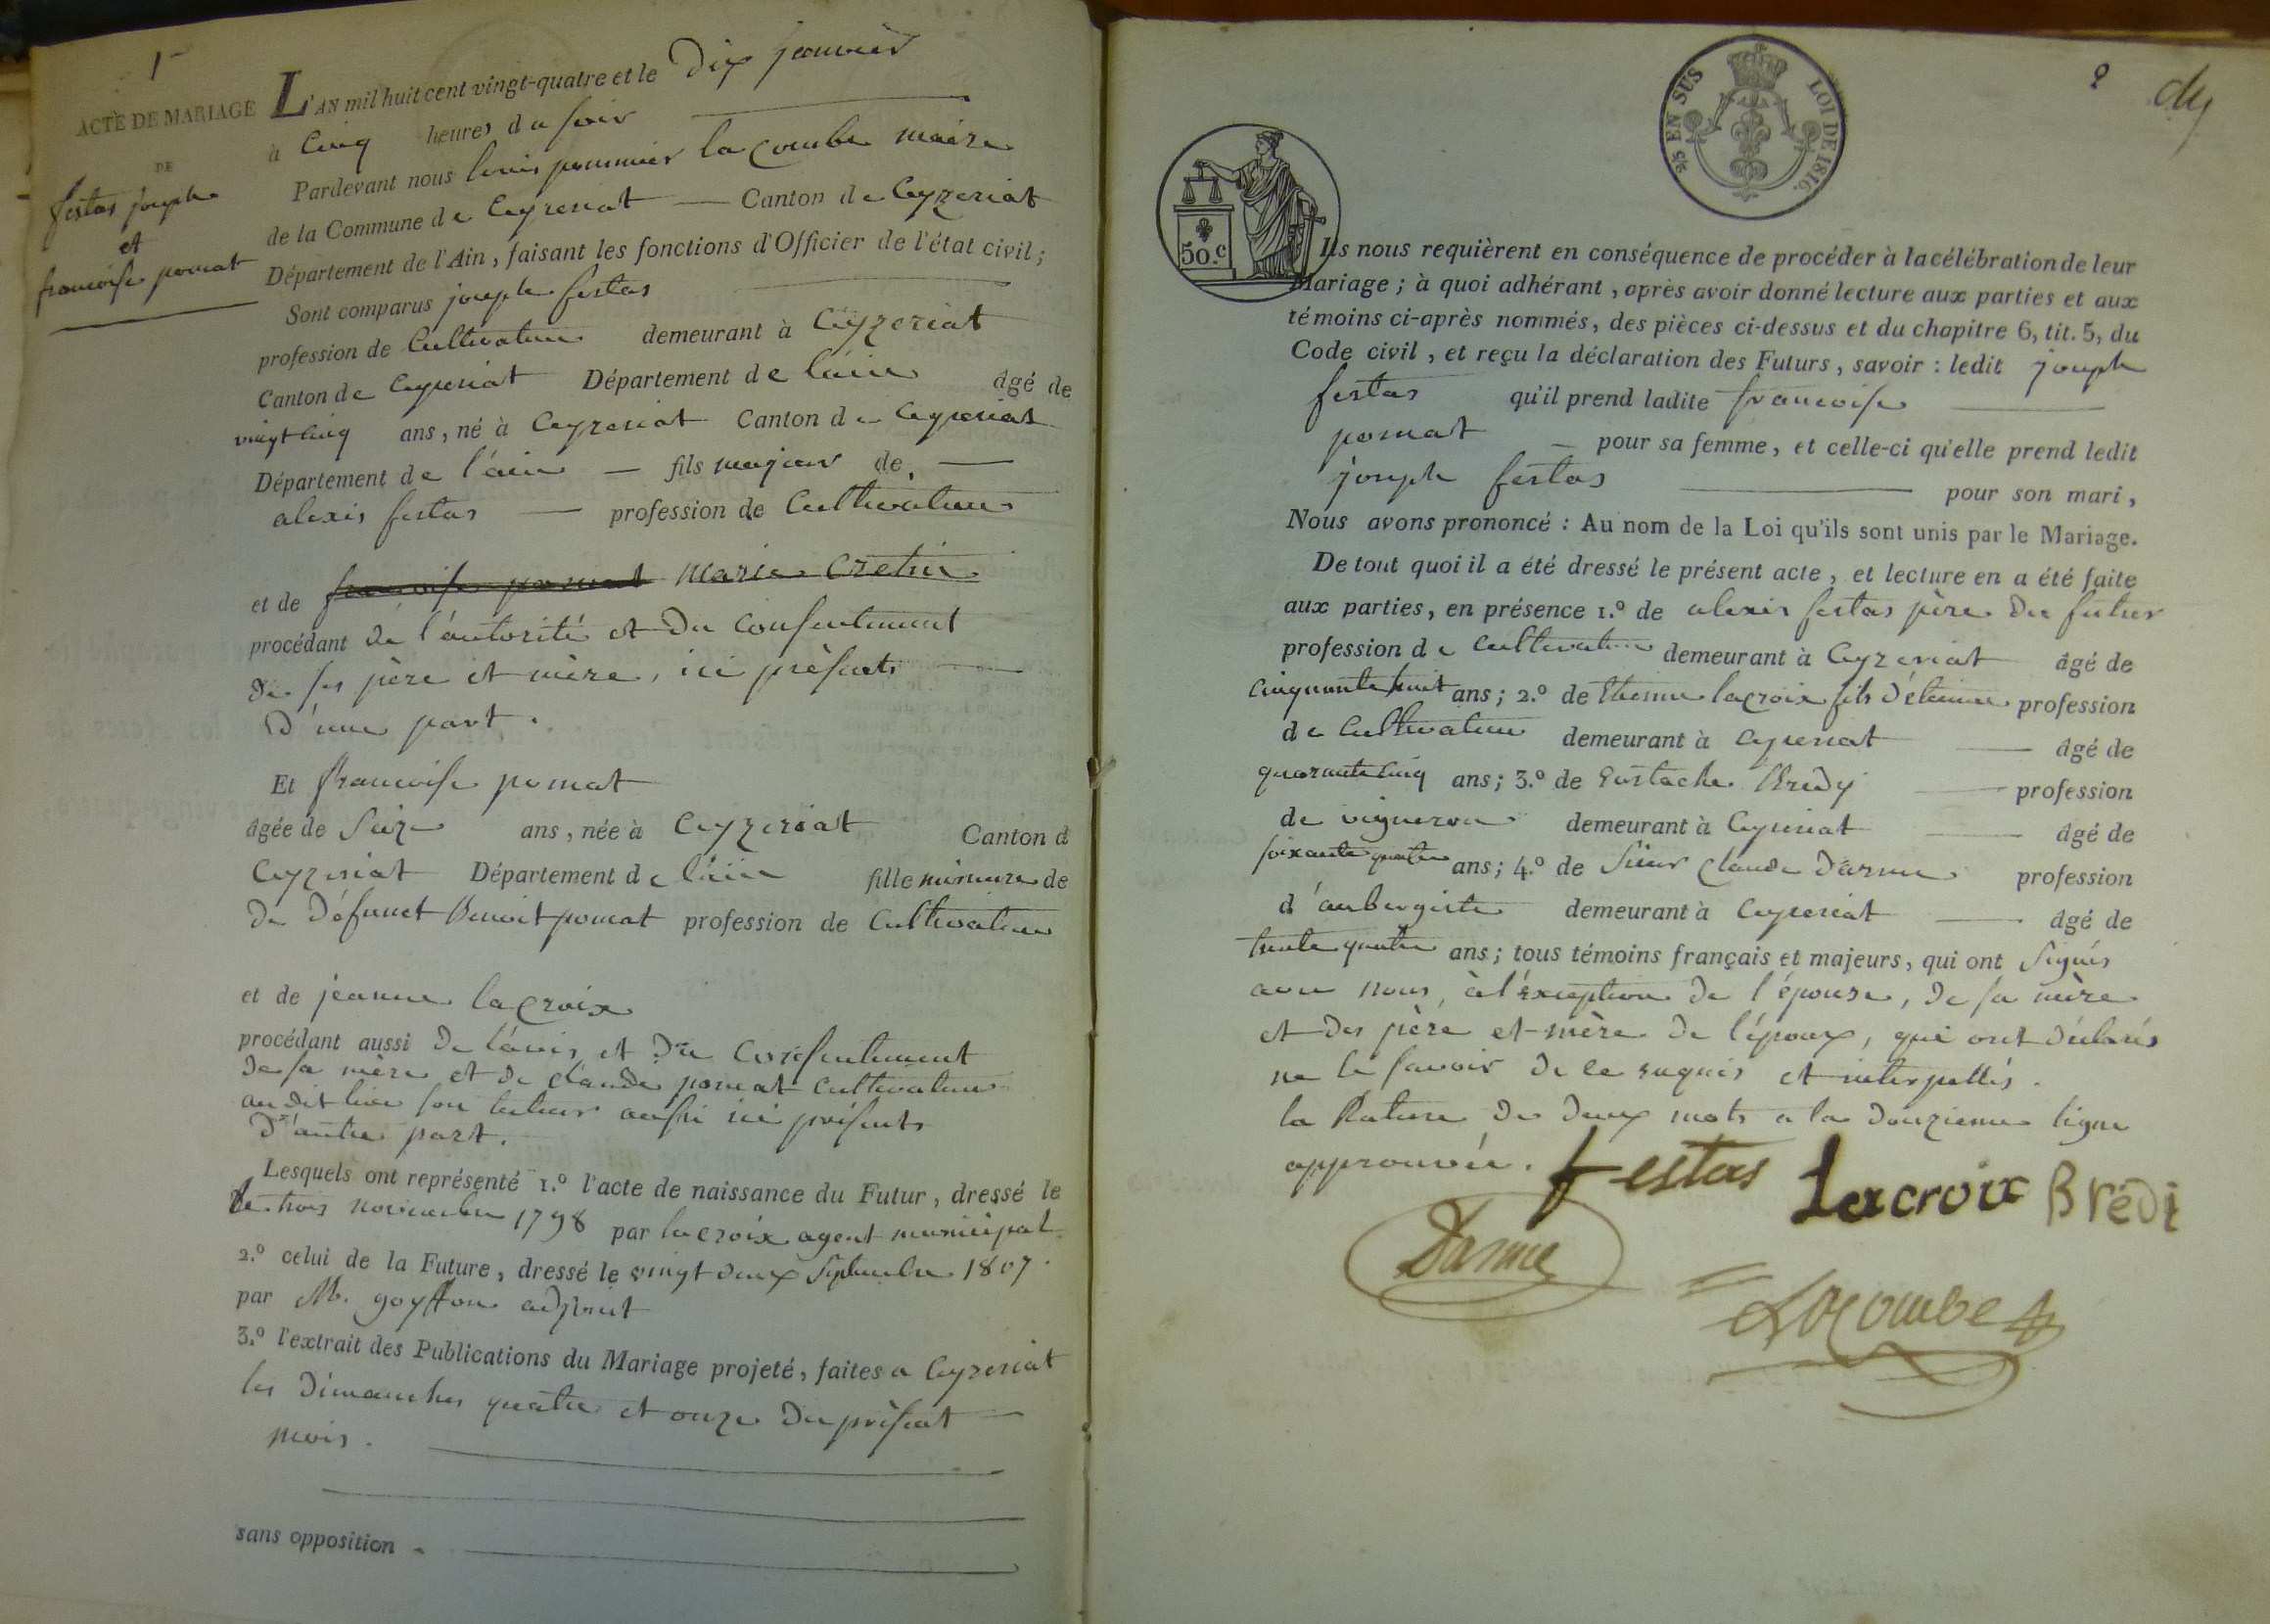 1
ACTE DE MARIAGE
DE
festas joseph
et
francoise pomat
L'AN mil huit cent vingt-quatre et le Dix janvier
à Cinq heures du soir
Pardevant nous louis pommier la combe maire
de la Commune de Ceyzeriat — Canton de Ceyzeriat
Département de l'Ain, faisant les fonctions d'Officier de l'état civil;
Sont comparus joseph festas
profession de Cultivateur demeurant à Ceyzeriat
Canton de Ceyzeriat Département de l'ain âgé de
vingt cinq ans, né à Ceyzeriat Canton de Ceyzeriat
Département de l'ain — fils majeur de —
alexis festas — profession de Cultivateur
et de francoise pomat marie Cretin
procédant de l'autorité et du consentement
de ses père et mère, ici présents
d'une part.
Et francoise pomat
âgée de Seize ans, née à Ceyzeriat Canton d
Ceyzeriat Département de l'ain fille mineure de
de défunct Benoit pomat profession de Cultivateur
et de jeanne lacroix
procédant aussi de l'avis et du consentement
de sa mère et de claude pomat cultivateur
au dit lieu son tuteur aussi ici présents
d'autre part.
Lesquels ont représenté 1.º l'acte de naissance du Futur, dressé le
le trois novembre 1798 par lacroix agent municipal
2.º celui de la Future, dressé le vingt deux Septembre 1807.
par M. goyffon adjoint
3.º l'extrait des Publications du Mariage projeté, faites a Ceyzeriat
les dimanches quatre et onze du présent
mois.
sans opposition
2
25 EN SUS LOI DE 1816.
50.c
Ils nous requièrent en conséquence de procéder à la célébration de leur
Mariage; à quoi adhérant, après avoir donné lecture aux parties et aux
témoins ci-après nommés, des pièces ci-dessus et du chapitre 6, tit. 5, du
Code civil, et reçu la déclaration des Futurs, savoir: ledit joseph
festas qu'il prend ladite francoise
pomat — pour sa femme, et celle-ci qu'elle prend ledit
joseph festas — pour son mari,
Nous avons prononcé: Au nom de la Loi qu'ils sont unis par le Mariage.
De tout quoi il a été dressé le présent acte, et lecture en a été faite
aux parties, en présence 1.º de alexis festas père du futur
profession de Cultivateur demeurant à Ceyzeriat âgé de
cinquante huit ans; 2.º de Etienne lacroix fils d'étienne profession
de Cultivateur demeurant à Ceyzeriat — âgé de
quarante cinq ans; 3.º de Eustache Bredy — profession
de vigneron demeurant à Ceyzeriat — âgé de
soixante quatre ans; 4.º de Sieur Claude Darme profession
d'aubergiste demeurant à Ceyzeriat — âgé de
trente quatre ans; tous témoins français et majeurs, qui ont Signés
avec nous, à l'éxception de l'épouse, de sa mère
et des père et mère de l'époux, qui ont déclarés
ne le savoir de ce requis et interpellés.
la Rature de deux mots a la douzieme ligne
approuvée.
festas Lacroix Brédi
Darme
Lacombe